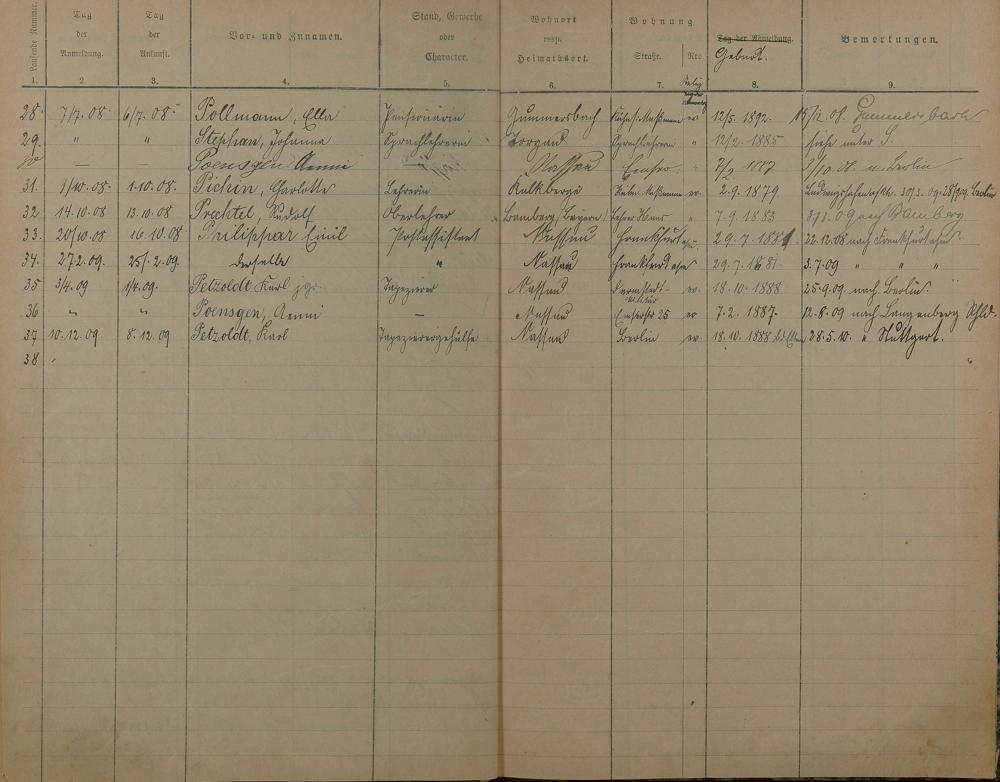 Laufende Nummer. Tag der Anmeldung. Tag der Ankunft. Vor- und Zunamen. Stand, Gewerbe oder Character. Wohnort resp. Heimathsort. Wohnung Straße. Nro. Tag der Abmeldung. Geburt. Bemerkungen.
1. 2. 3. 4. 5. 6. 7. 8. 9.
28. 7/7.08 6/7.08 Pollmann, Ella Pensionärin Gummersbach ev 12/5. 1892. Gummersbach
29. " " Stephan, Johanna Sprachlehrerin Torgau Sprachlehrerin " 12/2. 1885 siehe unter S.
30 — Poensgen Aenni Nassau Emser 7/2 1887 n. Berlin
31. 1/10.08. 1.10.08. Pichin, Charlotte Lehrerin Kalkberge ev. 2.9.1879 Berlin
32. 14.10.08 13.10.08 Prechtel, Rudolf Oberlehrer Bamberg (Bayern) " 7.9.1883 nach Bamberg
33. 20/10.08 16.10.08 Philippar Emil Postassistent Nassau Frankfurt 29.7.1881 22.12.08 nach Frankfurt
34. 27.2.09. 25/.2.09. derselbe " Nassau Frankfurt 29.7.1881. 3.7.09 " " "
35 3/4.09 1/4.09. Petzoldt Karl Tapezierer Nassau ev. 18.10.1888 25.9.09 nach Berlin.
36 " " Poensgen, Aenni — Nassau Emserstr 25 ev 7.2.1887. 12.8.09 nach Langenberg Rhld.
37. 10.12.09 8.12.09 Petzoldt, Karl Tapezierergehülfe Nassau Berlin ev. 18.10.1888 28.5.10. " Stuttgart.
38